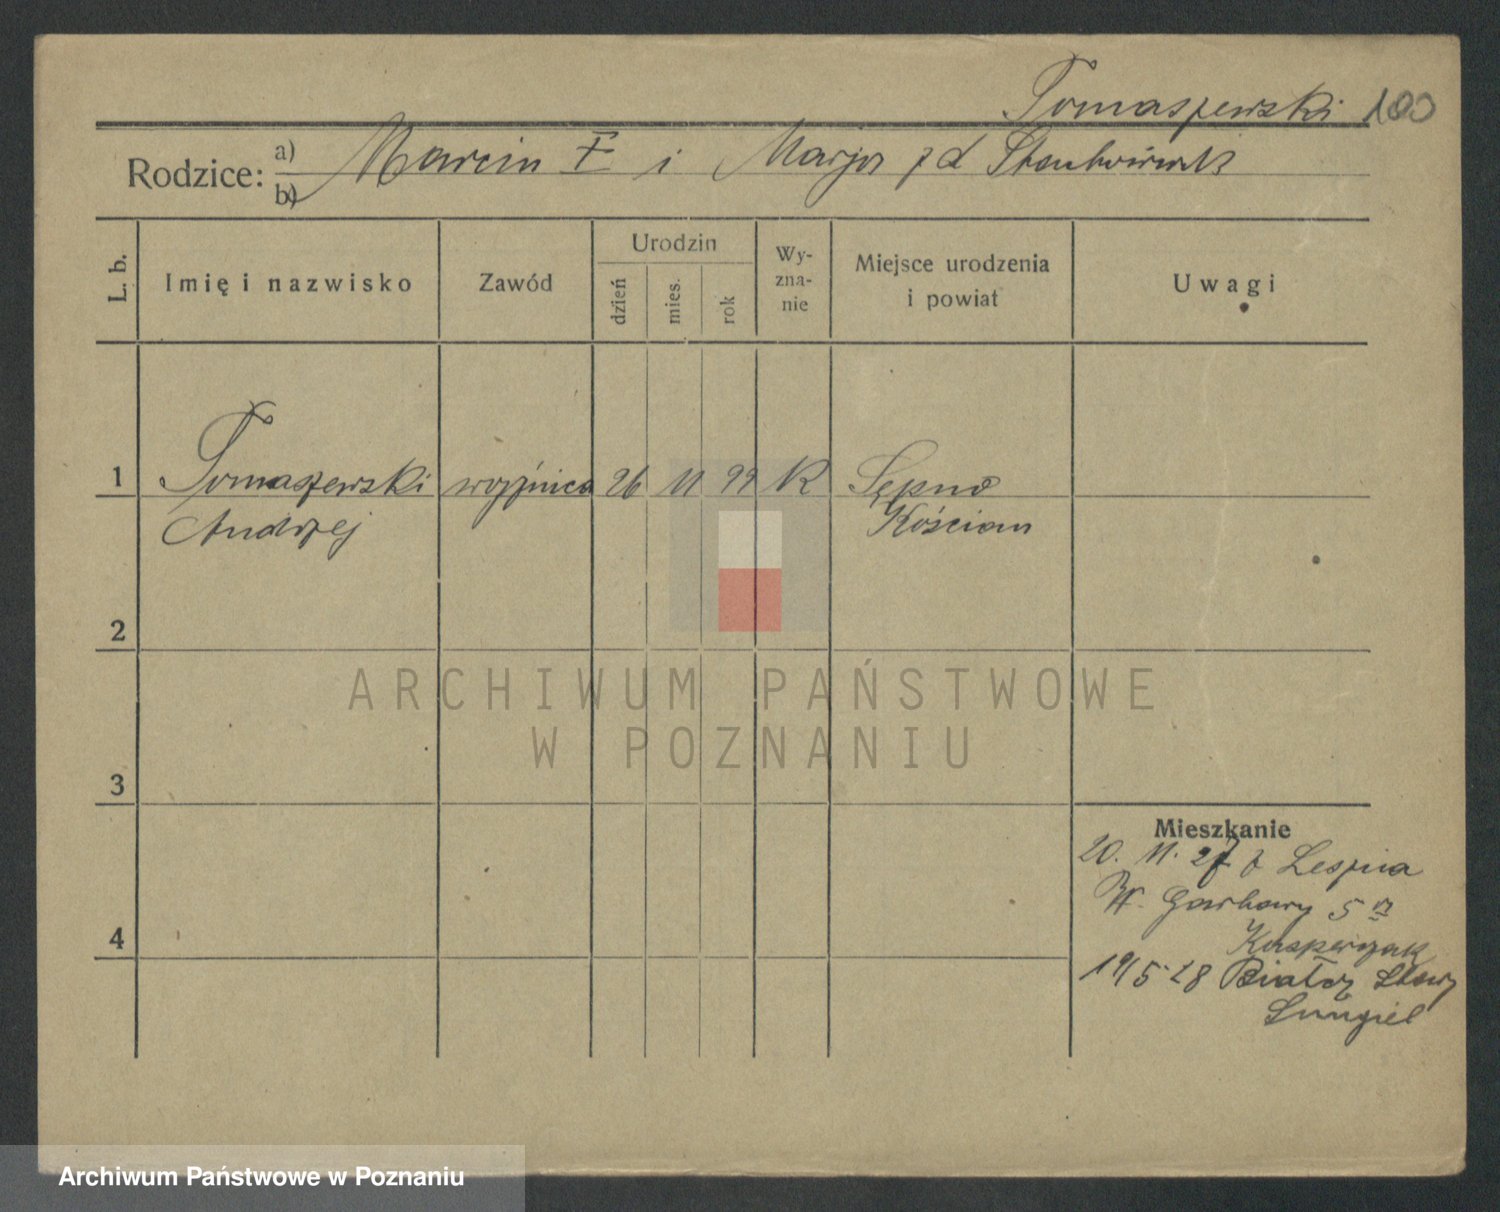 Tomaszewski 100
Rodzice: a) Marcin T i Marja z d
b)
L. b.
Imię i nazwisko
Zawód
Urodzin
dzień
mies.
rok
Wy-
zna-
nie
Miejsce urodzenia
i powiat
Uwagi
1 Tomaszewski 26 11 99 K Sępno
Andrzej Kościan
2
ARCHIWUM PAŃSTWOWE
W POZNANIU
3
Mieszkanie
20. 11. 27 z Leszna
W. Garbary 5
4
Kasperczak
19/5 28
Archiwum Państwowe w Poznaniu